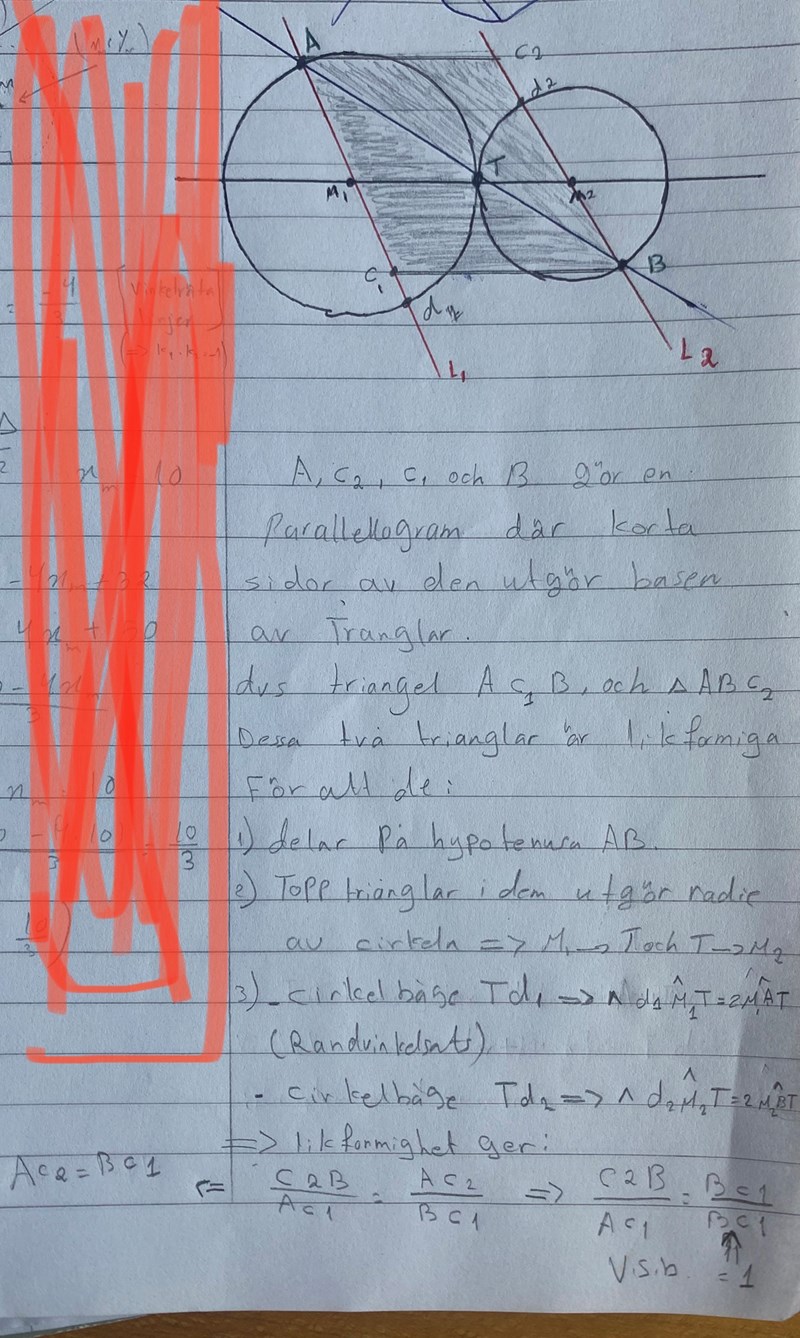 (m(x)
A
C2
d2
M1
T
M2
C1
B
d1
L1
L2
= -4/3
[Vinkelräta
linjer
(=> k1·k2=-1)
xm 10
A, C2, C1 och B gör en
Parallellogram där korta
-4xm+32
sidor av den utgör basen
4xm+50
av Tranglar.
dvs triangel A C1 B, och △ ABC2
Dessa två trianglar är likformiga
För att de:
10/3
1) delar på hypotenusa AB.
2) Topp trianglar i dem utgör radie
av cirkeln => M1 -> T och T -> M2
3) - cirkelbåge Td1 => ^ d1M̂1T=2M1ÂT
(Randvinkelsats)
- cirkelbåge Td2 => ^ d2M̂2T=2M2B̂T
=> likformighet ger:
AC2 = BC1
C2B/AC1 = AC2/BC1 => C2B/AC1 = BC1/BC1
V.s.b. = 1